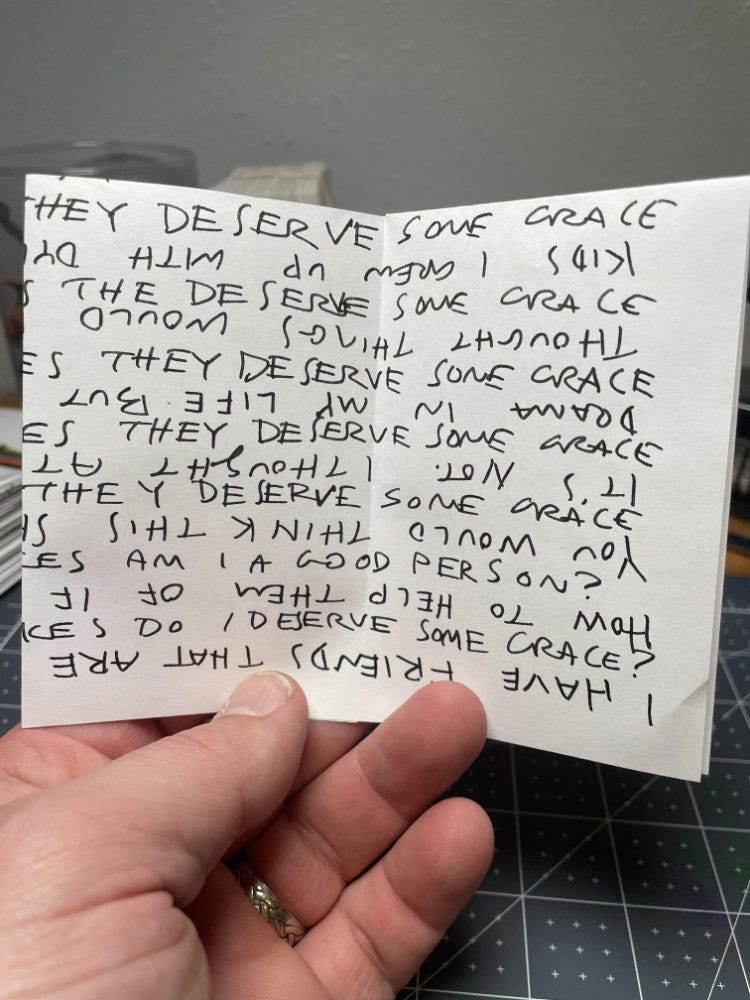 THEY DESERVE SOME GRACE
S THE DESERVE SOME GRACE
ES THEY DESERVE SOME GRACE
ES THEY DESERVE SOME GRACE
THEY DESERVE SOME GRACE
ES AM I A GOOD PERSON?
CES DO I DESERVE SOME GRACE?
I HAVE FRIENDS THAT ARE
HOW TO HELP THEM OF IF
YOU WOULD THINK THIS
IT'S NOT. I THOUGHT AT
DRAMA IN MY LIFE BUT
THOUGHT THINGS WOULD
KIDS I GREW UP WITH